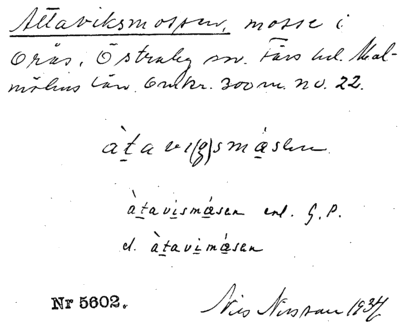 Åttaviksmossen, mosse i
Orås, Östraby sn. Färs hd. Mal-
möhus län. Omkr. 300 m. nv. 22.
àṯavi(g)smáse̱n
àṯavi̱smáse̱n enl. G.P.
el. àṯavi̱máse̱n
Nr 5602.
Nils Nilsson 1934